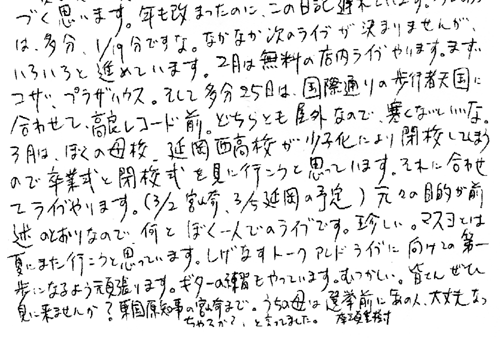 づく思います。年も改まったのに、この日記
は、多分、1/19分ですな。なかなか次のライブが決まりませんが、
いろいろと進めています。2月は無料の店内ライブやります。まず、
コザ、プラザハウス。そして多分25日は、国際通りの歩行者天国に
合わせて、高良レコード前。どちらとも屋外なので、寒くないといいな。
3月は、ぼくの母校、延岡西高校が少子化により閉校してしまう
ので卒業式と閉校式を見に行こうと思っています。それに合わせ
てライブやります。(3/2 宮崎、3/5 延岡の予定) 元々の目的が前
述のとおりなので、何とぼく一人でのライブです。珍しい。マスヨとは
夏にまた行こうと思っています。しげなすトークアンドライブに向けての第一
歩になるよう頑張ります。ギターの練習もやっています。むつかしい。皆さんぜひ
見に来ませんか?東国原知事の宮崎まで。うちの母は選挙前にあの人、大丈夫なっ
ちゃろか?、と言ってました。